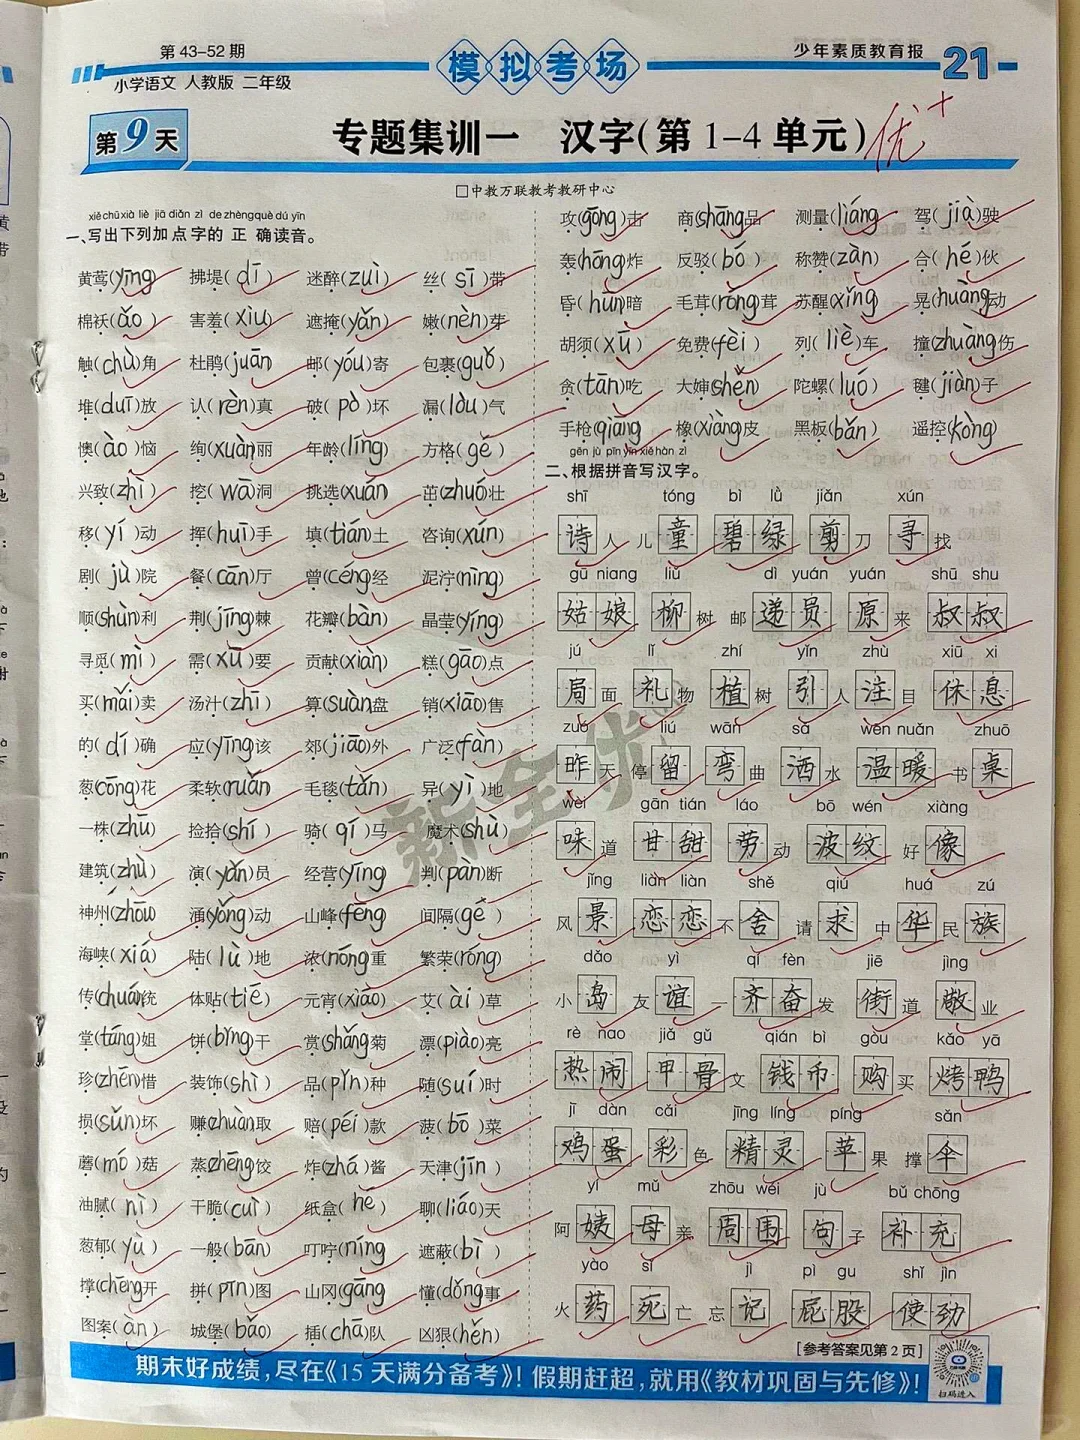 第 43-52 期
模拟考场
少年素质教育报
21
小学语文 人教版 二年级
第9天
专题集训一 汉字(第 1-4 单元)
优+
□中教万联教考教研中心
xiě chū xià liè jiā diǎn zì de zhèng què dú yīn
一、写出下列加点字的正确读音。
黄莺(yīng) 拂堤(dī) 迷醉(zuì) 丝(sī)带
棉袄(ǎo) 害羞(xiū) 遮掩(yǎn) 嫩(nèn)芽
触(chù)角 杜鹃(juān) 邮(yóu)寄 包裹(guǒ)
堆(duī)放 认(rèn)真 破(pò)坏 漏(lòu)气
懊(ào)恼 绚(xuàn)丽 年龄(líng) 方格(gé)
兴致(zhì) 挖(wā)洞 挑选(xuǎn) 茁(zhuó)壮
移(yí)动 挥(huī)手 填(tián)土 咨询(xún)
剧(jù)院 餐(cān)厅 曾(céng)经 泥泞(nìng)
顺(shùn)利 荆(jīng)棘 花瓣(bàn) 晶莹(yíng)
寻觅(mì) 需(xū)要 贡献(xiàn) 糕(gāo)点
买(mǎi)卖 汤汁(zhī) 算(suàn)盘 销(xiāo)售
的(dí)确 应(yīng)该 郊(jiāo)外 广泛(fàn)
葱(cōng)花 柔软(ruǎn) 毛毯(tǎn) 异(yì)地
一株(zhū) 捡拾(shí) 骑(qí)马 魔术(shù)
建筑(zhù) 演(yǎn)员 经营(yíng) 判(pàn)断
神州(zhōu) 涌(yǒng)动 山峰(fēng) 间隔(gé)
海峡(xiá) 陆(lù)地 浓(nóng)重 繁荣(róng)
传(chuán)统 体贴(tiē) 元宵(xiāo) 艾(ài)草
堂(táng)姐 饼(bǐng)干 赏(shǎng)菊 漂(piào)亮
珍(zhēn)惜 装饰(shì) 品(pǐn)种 随(suí)时
损(sǔn)坏 赚(zhuàn)取 赔(péi)款 菠(bō)菜
蘑(mó)菇 蒸(zhēng)饺 炸(zhá)酱 天津(jīn)
油腻(nì) 干脆(cuì) 纸盒(hé) 聊(liáo)天
葱郁(yù) 一般(bān) 叮咛(níng) 遮蔽(bì)
撑(chēng)开 拼(pīn)图 山冈(gāng) 懂(dǒng)事
图案(àn) 城堡(bǎo) 插(chā)队 凶狠(hěn)
攻(gōng)击 商(shāng)品 测量(liáng) 驾(jià)驶
轰(hōng)炸 反驳(bó) 称赞(zàn) 合(hé)伙
昏(hūn)暗 毛茸(róng)茸 苏醒(xǐng) 晃(huàng)动
胡须(xū) 免费(fèi) 列(liè)车 撞(zhuàng)伤
贪(tān)吃 大婶(shěn) 陀螺(luó) 毽(jiàn)子
手枪(qiāng) 橡(xiàng)皮 黑板(bǎn) 遥控(kòng)
gēn jù pīn yīn xiě hàn zì
二、根据拼音写汉字。
shī tóng bì lǜ jiǎn xún
诗人 儿童 碧绿 剪刀 寻找
gū niang liǔ dì yuán yuán shū shu
姑娘 柳树 邮递员 原来 叔叔
jú lǐ zhí yǐn zhù xiū xi
局面 礼物 植树 引人注目 休息
zuó liú wān sǎ wēn nuǎn zhuō
昨天 停留 弯曲 洒水 温暖 书桌
wèi gān tián láo bō wén xiàng
味道 甘甜 劳动 波纹 好像
jǐng liàn liàn shě qiú huá zú
风景 恋恋不舍 请求 中华民族
dǎo yì qí fèn jiē jìng
小岛 友谊 一齐奋发 街道 敬业
rè nao jiǎ gǔ qián bì gòu kǎo yā
热闹 甲骨文 钱币 购买 烤鸭
jī dàn cǎi jīng líng píng sǎn
鸡蛋 彩色 精灵 苹果 撑伞
yí mǔ zhōu wéi jù bǔ chōng
阿姨 母亲 周围 句子 补充
yào sǐ jì pì gu shǐ jìn
火药 死亡 忘记 屁股 使劲
[参考答案见第 2 页]
新全优
期末好成绩,尽在《15 天满分备考》! 假期赶超,就用《教材巩固与先修》!
扫码进入